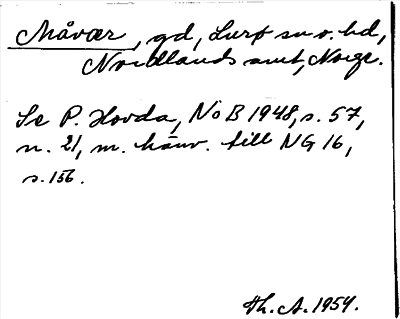 Måvær, gd, Lurøy sn o. hd,
Nordlands amt, Norge.
Se P. Hovda, NoB 1948, s. 57,
n. 21, m. hänv. till NG 16,
s. 156.
Th. A. 1954.